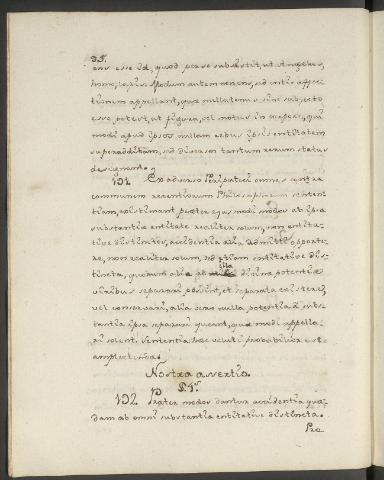 ens esse id, quod per se subsistit, ut Angelus,
homo, lapis. Modum autem rerum, ad entis affec-
tionem appellant, quæ nullatenus sine subjecto
esse potest, ut figura, vel motus in corpore, qui
modi apud ipsos nullam rebus ipsis entitatem
superadditam, sed diversum tantum rerum status
designant.
131 Ex adverso Peripateci omnes, contra
communem recentiorum Philosophorum senten-
tiam, existimant præter ejus modi modos ab ipsa
substantiæ entitate realiter solum, non entita-
tive distinctos, accidentia alia admitti oporte-
re, non realiter solum, sed etiam entitative dis-
tincta, quorum alia ab illa divina potentiæ
viribus separari possint, et separata existere,
vel conservari, alia vero nulla potentia à subs-
tantia ipsa separari queant, quæ modi appella-
ri solent. Sententia hæc veluti probabilior est
amplectenda.
Nostra assertio.
P. 1ª
132 Præter modos dantur accidentia quæ-
dam ab omni substantia entitative distincta.
Pro